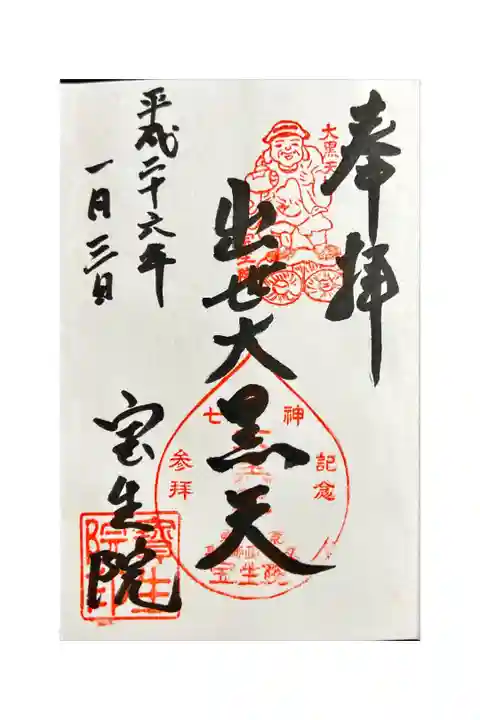 奉拝
大黒天
出世大黒天
七 神
参拝 記念
宝生院
平成二十六年
一月三日
宝生院
寶生院印